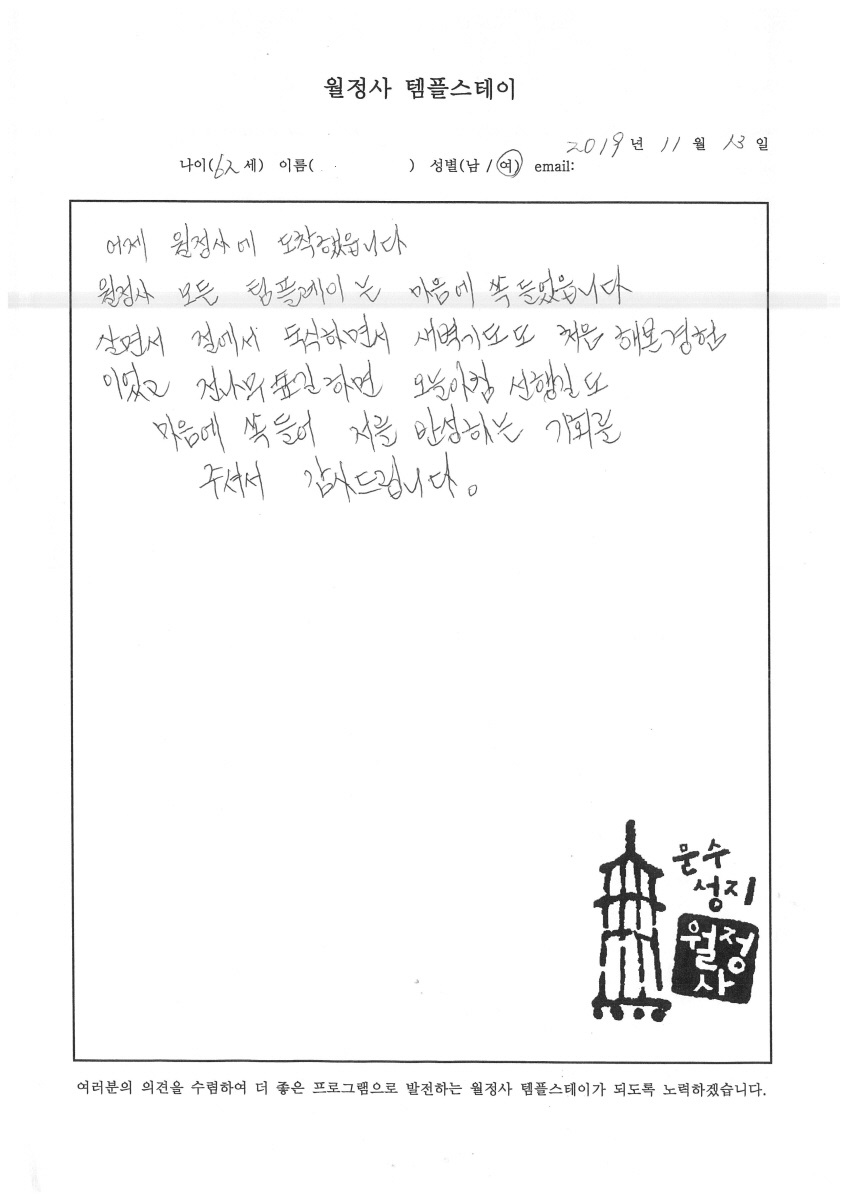 월정사 템플스테이
2019 년 11 월 13 일
나이(62세) 이름( ) 성별(남 / 여) email:
어제 월정사에 도착했읍니다
월정사 모든 템플레이는 마음에 쏙 들었읍니다
살면서 절에서 독식하면서 새벽기도도 처음 해본경헌
이었고 전나무 숲길하면 오늘아침 선행길도
마음에 쏙들어 저를 반성하는 기회를
주셔서 감사드립니다。
문수
성지
월정
사
여러분의 의견을 수렴하여 더 좋은 프로그램으로 발전하는 월정사 템플스테이가 되도록 노력하겠습니다.